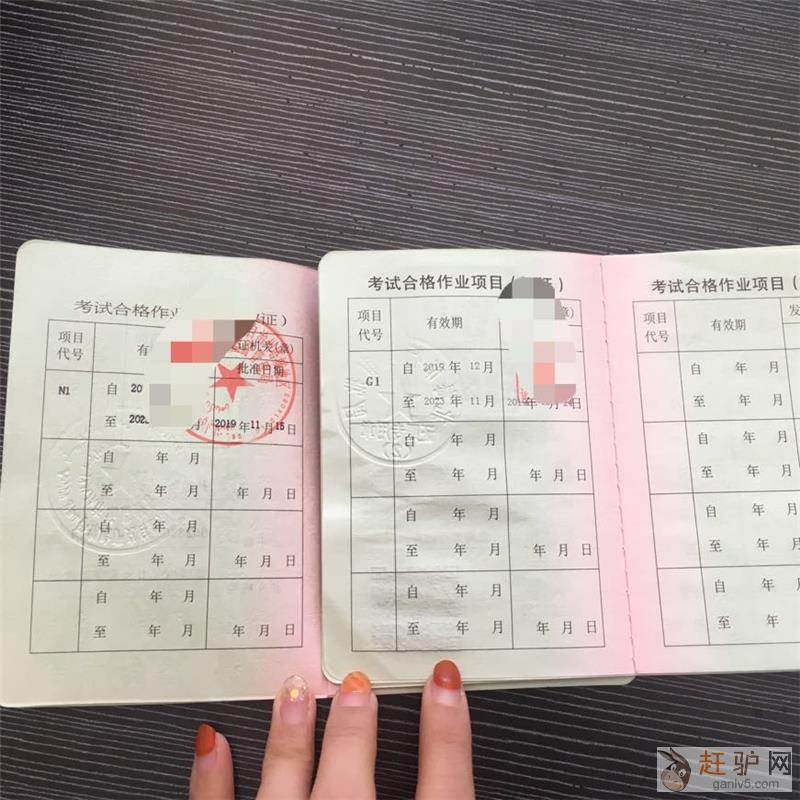 考试合格作业 证）
项目代号 有 证机关(章)
批准日期
N1 自 20
至 202 月 2019年11月15日
自 年 月
至 年 月 年 月 日
自 年 月
至 年 月 年 月 日
自 年 月
至 年 月 年 月 日
考试合格作业项目（ 证）
项目代号 有效期 章)
G1 自 2019 年 12 月
至 2023 年 11 月
自 年 月
至 年 月 年 月 日
自 年 月
至 年 月 年 月 日
自 年 月
至 年 月 年 月 日
考试合格作业项目（
项目代号 有效期 发
自 年 月
至 年 月 年
自 年 月
至 年 月 年
自 年 月
至 年 月 年
自 年 月
至 年 月 年
赶驴网
ganlv5.com